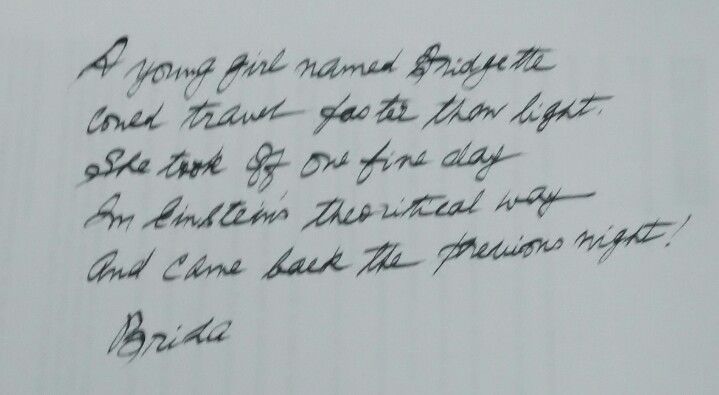 A young girl named Bridgette
could travel faster than light.
She took off one fine day
In Einstein's theoritical way
And came back the previous night!
Brida